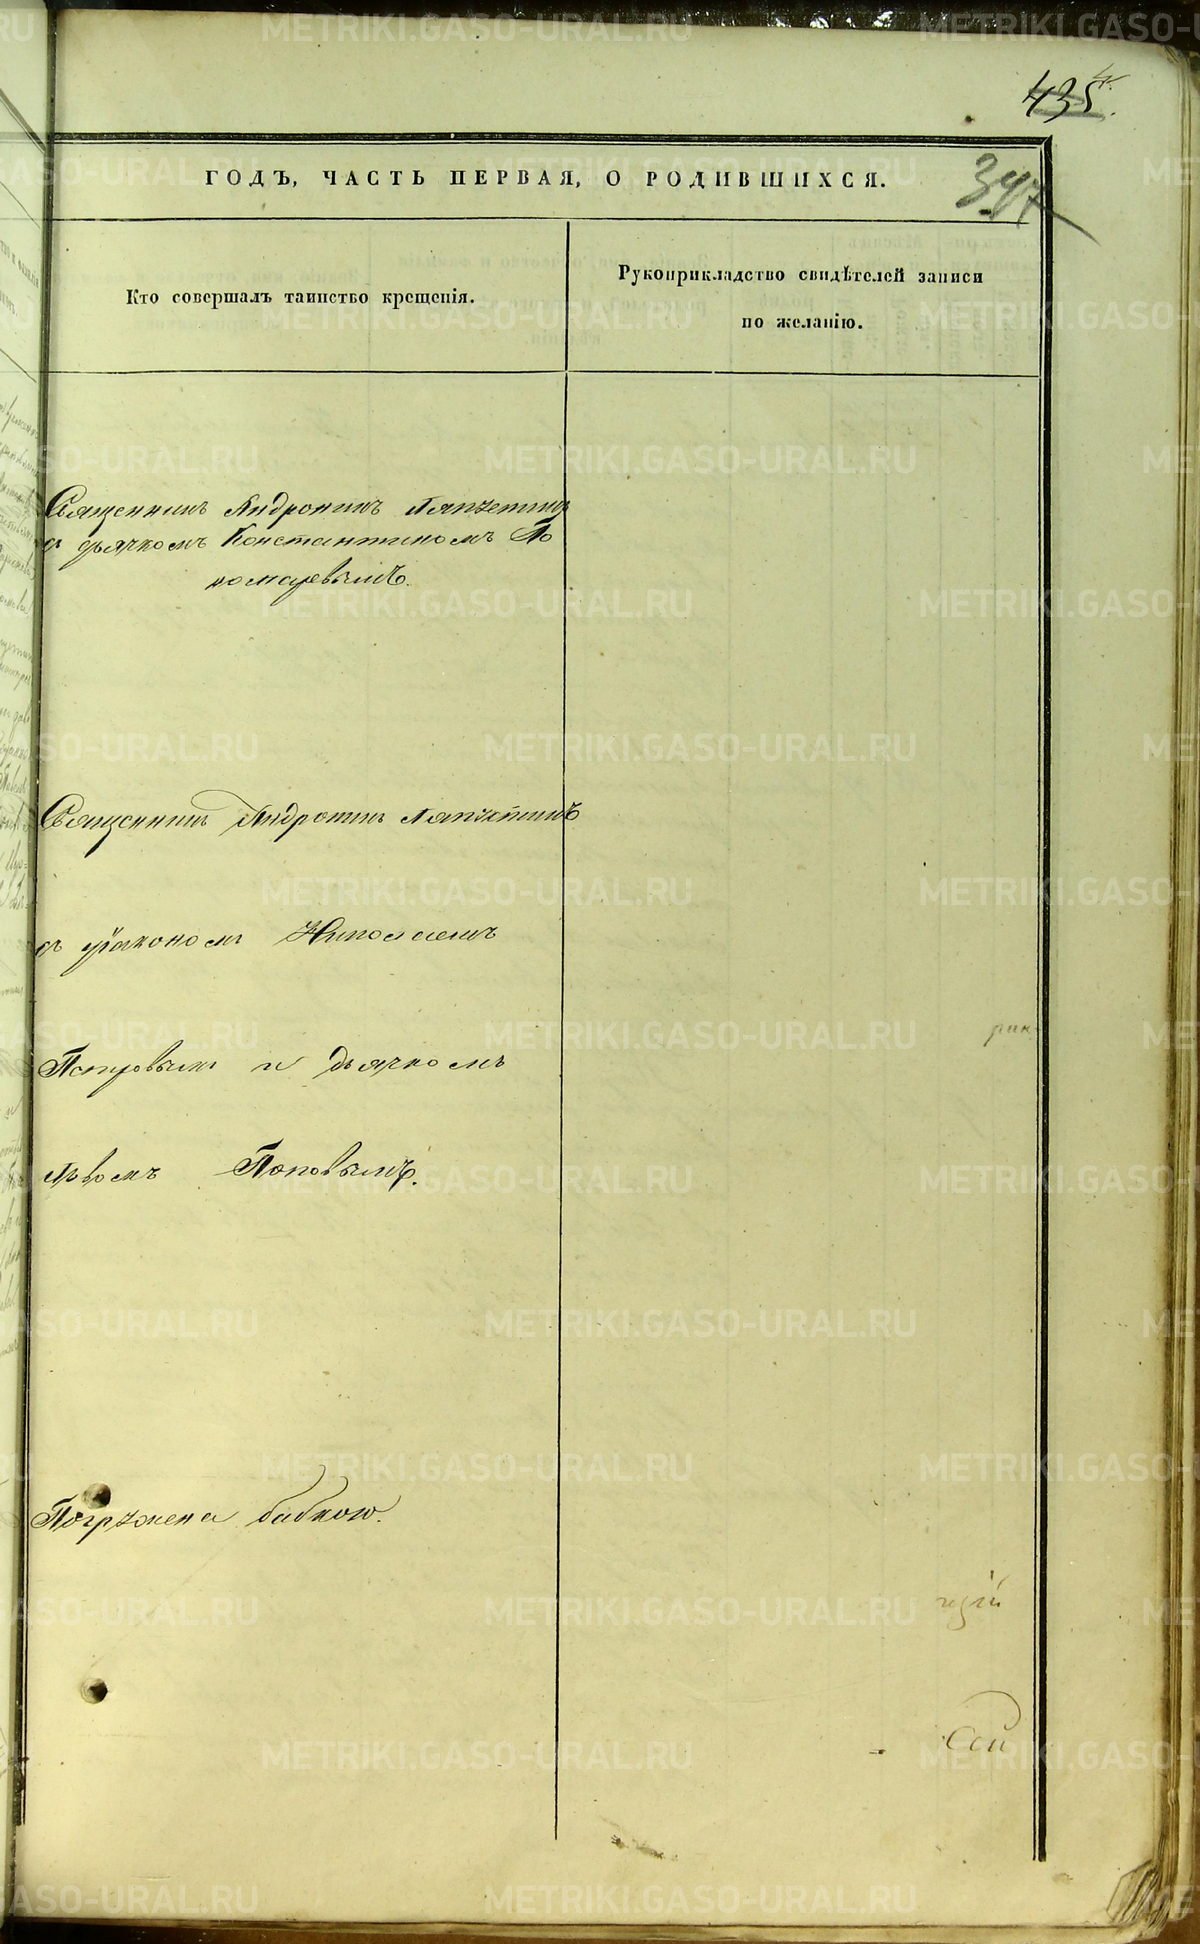 435
347
ГОДЪ, ЧАСТЬ ПЕРВАЯ, О РОДИВШИХСЯ.
Кто совершалъ таинство крещенія.
Рукоприкладство свидѣтелей записи
по желанію.
Священникъ Андроникъ Ляпустинъ
съ дьячкомъ Константиномъ По
номаревымъ.
Священникъ Андроникъ Ляпустинъ
съ діакономъ Николаемъ
Петровымъ и дьячкомъ
Львомъ Поповымъ.
Погружена бабкою.
METRIKI.GASO-URAL.RU